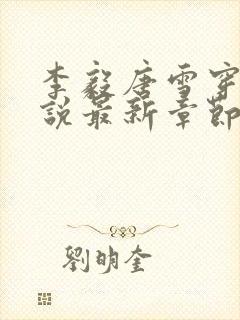 李毅唐雪穿
說最新章節
劉明奎